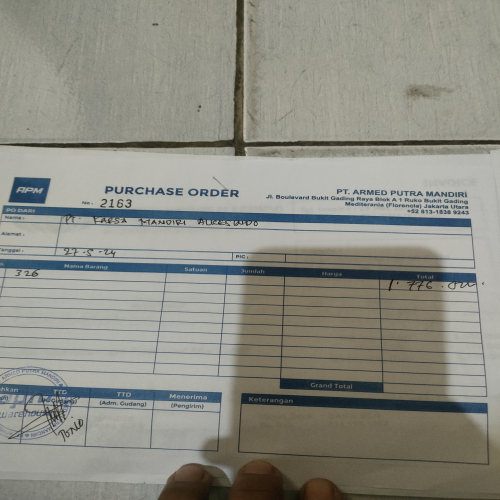 APM
PURCHASE ORDER
No. 2163
PT. ARMED PUTRA MANDIRI
Jl. Boulevard Bukit Gading Raya Blok A 1 Ruko Bukit Gading
Mediterania (Florencia) Jakarta Utara
+52 813-1838 9243
PO DARI
Nama : PT. KARSA MANDIRI
Alamat :
Tanggal : 27-5-24
PIC :
Nama Barang Satuan Jumlah Harga Total
326 1.776.
Grand Total
TTD TTD Menerima
(Adm. Gudang) (Pengirim)
Keterangan